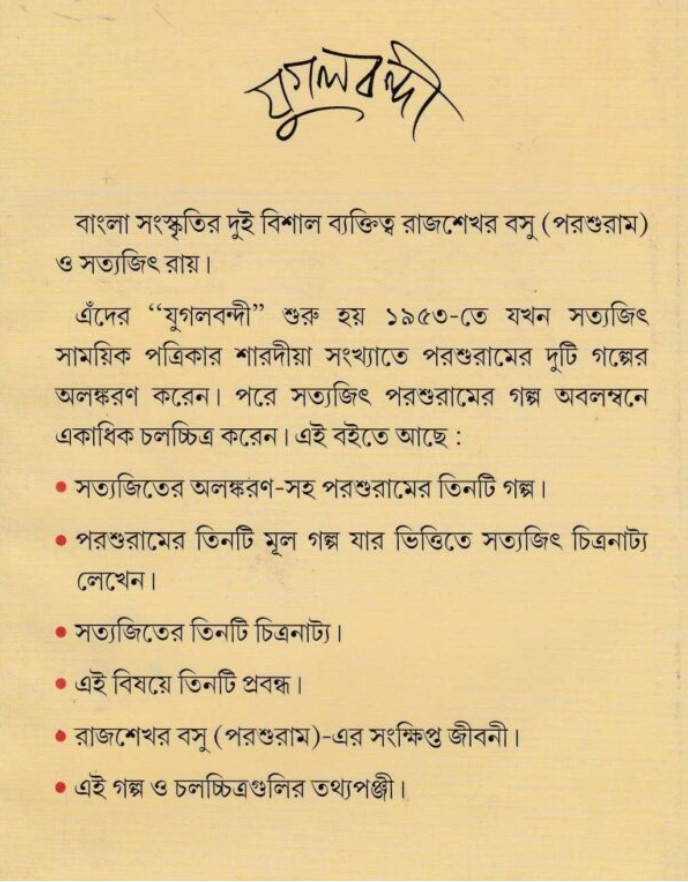 যুগলবন্দী
বাংলা সংস্কৃতির দুই বিশাল ব্যক্তিত্ব রাজশেখর বসু (পরশুরাম)
ও সত্যজিৎ রায়।
এঁদের “যুগলবন্দী” শুরু হয় ১৯৫৩-তে যখন সত্যজিৎ
সাময়িক পত্রিকার শারদীয়া সংখ্যাতে পরশুরামের দুটি গল্পের
অলঙ্করণ করেন। পরে সত্যজিৎ পরশুরামের গল্প অবলম্বনে
একাধিক চলচ্চিত্র করেন। এই বইতে আছে :
• সত্যজিতের অলঙ্করণ-সহ পরশুরামের তিনটি গল্প।
• পরশুরামের তিনটি মূল গল্প যার ভিত্তিতে সত্যজিৎ চিত্রনাট্য
লেখেন।
• সত্যজিতের তিনটি চিত্রনাট্য।
• এই বিষয়ে তিনটি প্রবন্ধ।
• রাজশেখর বসু (পরশুরাম)-এর সংক্ষিপ্ত জীবনী।
• এই গল্প ও চলচ্চিত্রগুলির তথ্যপঞ্জী।